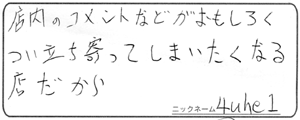 店内のコメントなどがおもしろく
つい立ち寄ってしまいたくなる
店だから
ニックネーム 4uhe1